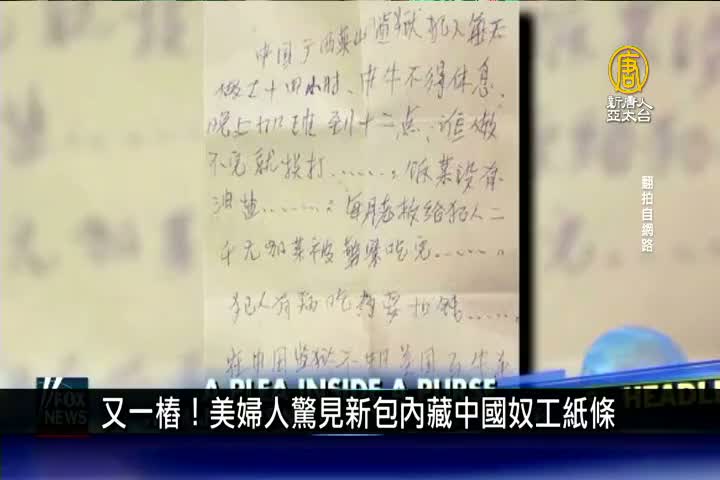 中国广西英山监狱犯人每天
做工十四小时、中午不得休息,
晚上加班到十二点,谁做
不完就挨打.......,饭菜没有
油盐.......,每月老板给犯人二
千元加菜被警察吃完......
犯人有病吃药要扣钱......
在中国监狱不
唐
新唐人
亞太台
翻拍自網路
A PLEA INSIDE A PURSE
HEADLI
FOX
NEWS
又一樁！美婦人驚見新包內藏中國奴工紙條